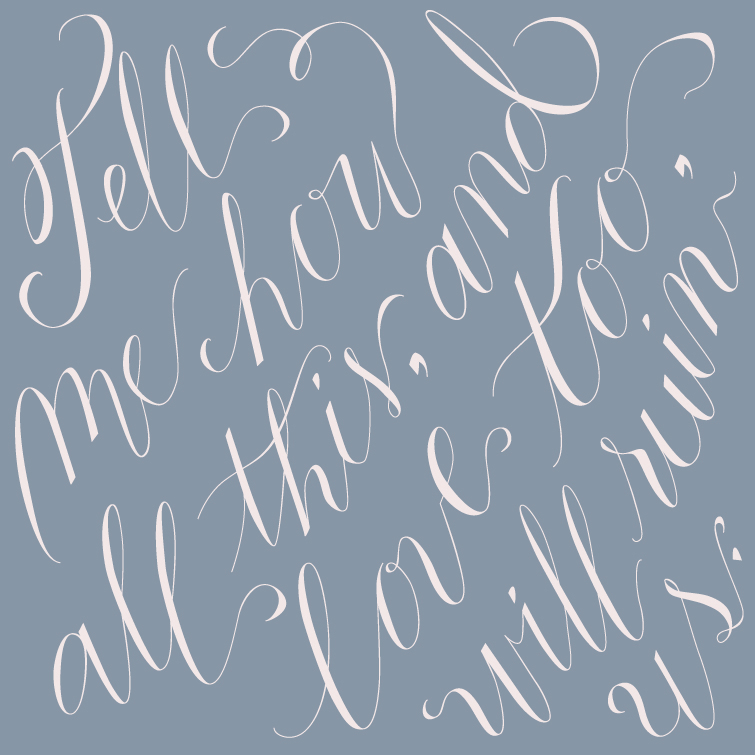 Tell
me how
all this, and
love too,
will ruin
us.